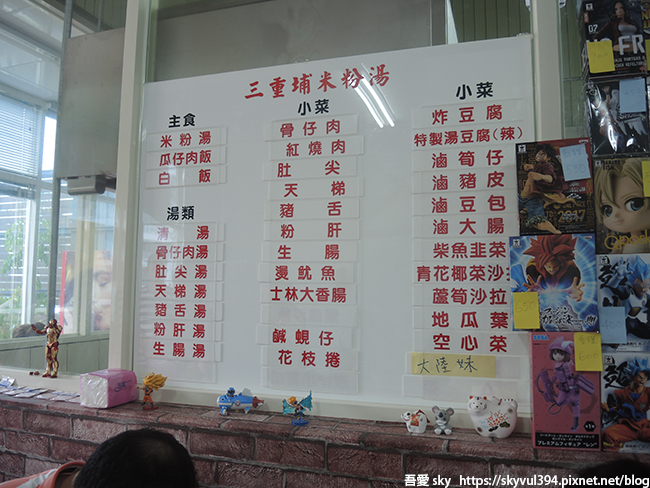 三重埔米粉湯
主食
米粉湯
瓜仔肉飯
白飯
湯類
清湯
骨仔肉湯
肚尖湯
天梯湯
豬舌湯
粉肝湯
生腸湯
小菜
骨仔肉
紅燒肉
肚尖
天梯
豬舌
粉肝
生腸
燙魷魚
士林大香腸
鹹蜆仔
花枝捲
小菜
炸豆腐
特製湯豆腐(辣)
滷筍仔
滷豬皮
滷豆包
滷大腸
柴魚韭菜
青花椰菜沙
蘆筍沙拉
地瓜葉
空心菜
大陸妹
07
2017
吾愛 sky_https://skyvul394.pixnet.net/blog